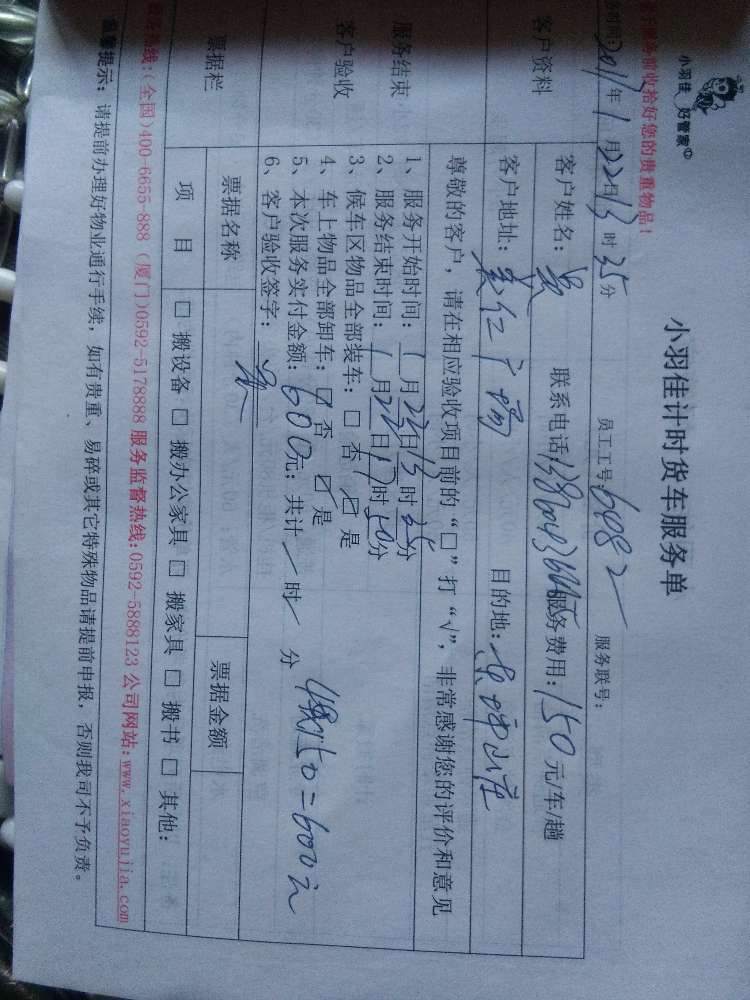 小羽佳 好管家
小羽佳计时货车服务单
于服务前收拾好您的贵重物品!
时间:2011年1月22日13时35分 员工工号:6082 服务联号:
客户资料
客户姓名:吴 联系电话: 服务费用:150元/车/趟
客户地址: 目的地:
尊敬的客户,请在相应验收项目前的“□”打“√”,非常感谢您的评价和意见
服务结束
客户验收
1、服务开始时间:1月22日13时35分
2、服务结束时间:1月22日17时50分
3、候车区物品全部装车:□ 否 ☑ 是
4、车上物品全部卸车:☑ 否 ☑ 是
5、本次服务实付金额:600元;共计/时/分
6、客户验收签字:吴
=600元
票据栏
票据名称 票据金额
项 目 □ 搬设备 □ 搬办公家具 □ 搬家具 □ 搬书 □ 其他:
热线:(全国)400-6655-888 (厦门)0592-5178888 服务监督热线:0592-5888123 公司网站:www.xiaoyujia.com
温馨提示: 请提前办理好物业通行手续,如有贵重、易碎或其它特殊物品请提前申报,否则我司不予负责。